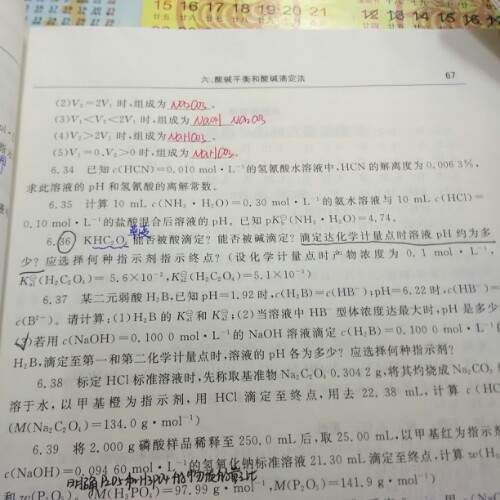 15 16 17 18 19 20 21
12 13 14 15 16
六、酸碱平衡和酸碱滴定法 67
(2)V₂=2V₁ 时,组成为 Na₂CO₃.
(3)V₁<V₂<2V₁ 时,组成为 NaOH Na₂CO₃
(4)V₂>2V₁ 时,组成为 NaHCO₃.
(5)V₁=0,V₂>0 时,组成为 NaHCO₃.
6.34 已知 c(HCN)=0.010 mol·L⁻¹的氢氰酸水溶液中,HCN 的解离度为 0.006 3%,
求此溶液的 pH 和氢氰酸的离解常数。
6.35 计算 10 mL c(NH₃·H₂O)=0.30 mol·L⁻¹的氨水溶液与 10 mL c(HCl)=
0.10 mol·L⁻¹的盐酸混合后溶液的 pH。已知 pK⊖(NH₃·H₂O)=4.74。
6.36 KHC₂O₄ 能否被酸滴定?能否被碱滴定?滴定达化学计量点时溶液 pH 约为多
少?应选择何种指示剂指示终点?(设化学计量点时产物浓度为 0.1 mol·L⁻¹,
K⊖a1(H₂C₂O₄)=5.6×10⁻²,K⊖a2(H₂C₂O₄)=5.1×10⁻⁵)
6.37 某二元弱酸 H₂B,已知 pH=1.92 时,c(H₂B)=c(HB⁻);pH=6.22 时,c(HB⁻)=
c(B²⁻)。请计算:(1)H₂B 的 K⊖a1和 K⊖a2;(2)当溶液中 HB⁻型体浓度达最大时,pH 是多少
若用 c(NaOH)=0.100 0 mol·L⁻¹的 NaOH 溶液滴定 c(H₂B)=0.100 0 mol·L⁻¹的
H₂B,滴定至第一和第二化学计量点时,溶液的 pH 各为多少?应选择何种指示剂?
6.38 标定 HCl 标准溶液时,先称取基准物 Na₂C₂O₄ 0.304 2 g,将其灼烧成 Na₂CO₃
溶于水,以甲基橙为指示剂,用 HCl 滴定至终点,用去 22.38 mL,计算 c(HCl)
(M(Na₂C₂O₄)=134.0 g·mol⁻¹)
6.39 将 2.000 g 磷酸样品稀释至 250.0 mL 后,取 25.00 mL,以甲基红为指示剂
c(NaOH)=0.094 60 mol·L⁻¹的氢氧化钠标准溶液 21.30 mL 滴定至终点,计算 w(H₃
和 w(P₂O₅)。(M(H₃PO₄)=97.99 g·mol⁻¹,M(P₂O₅)=141.9 g·mol⁻¹)